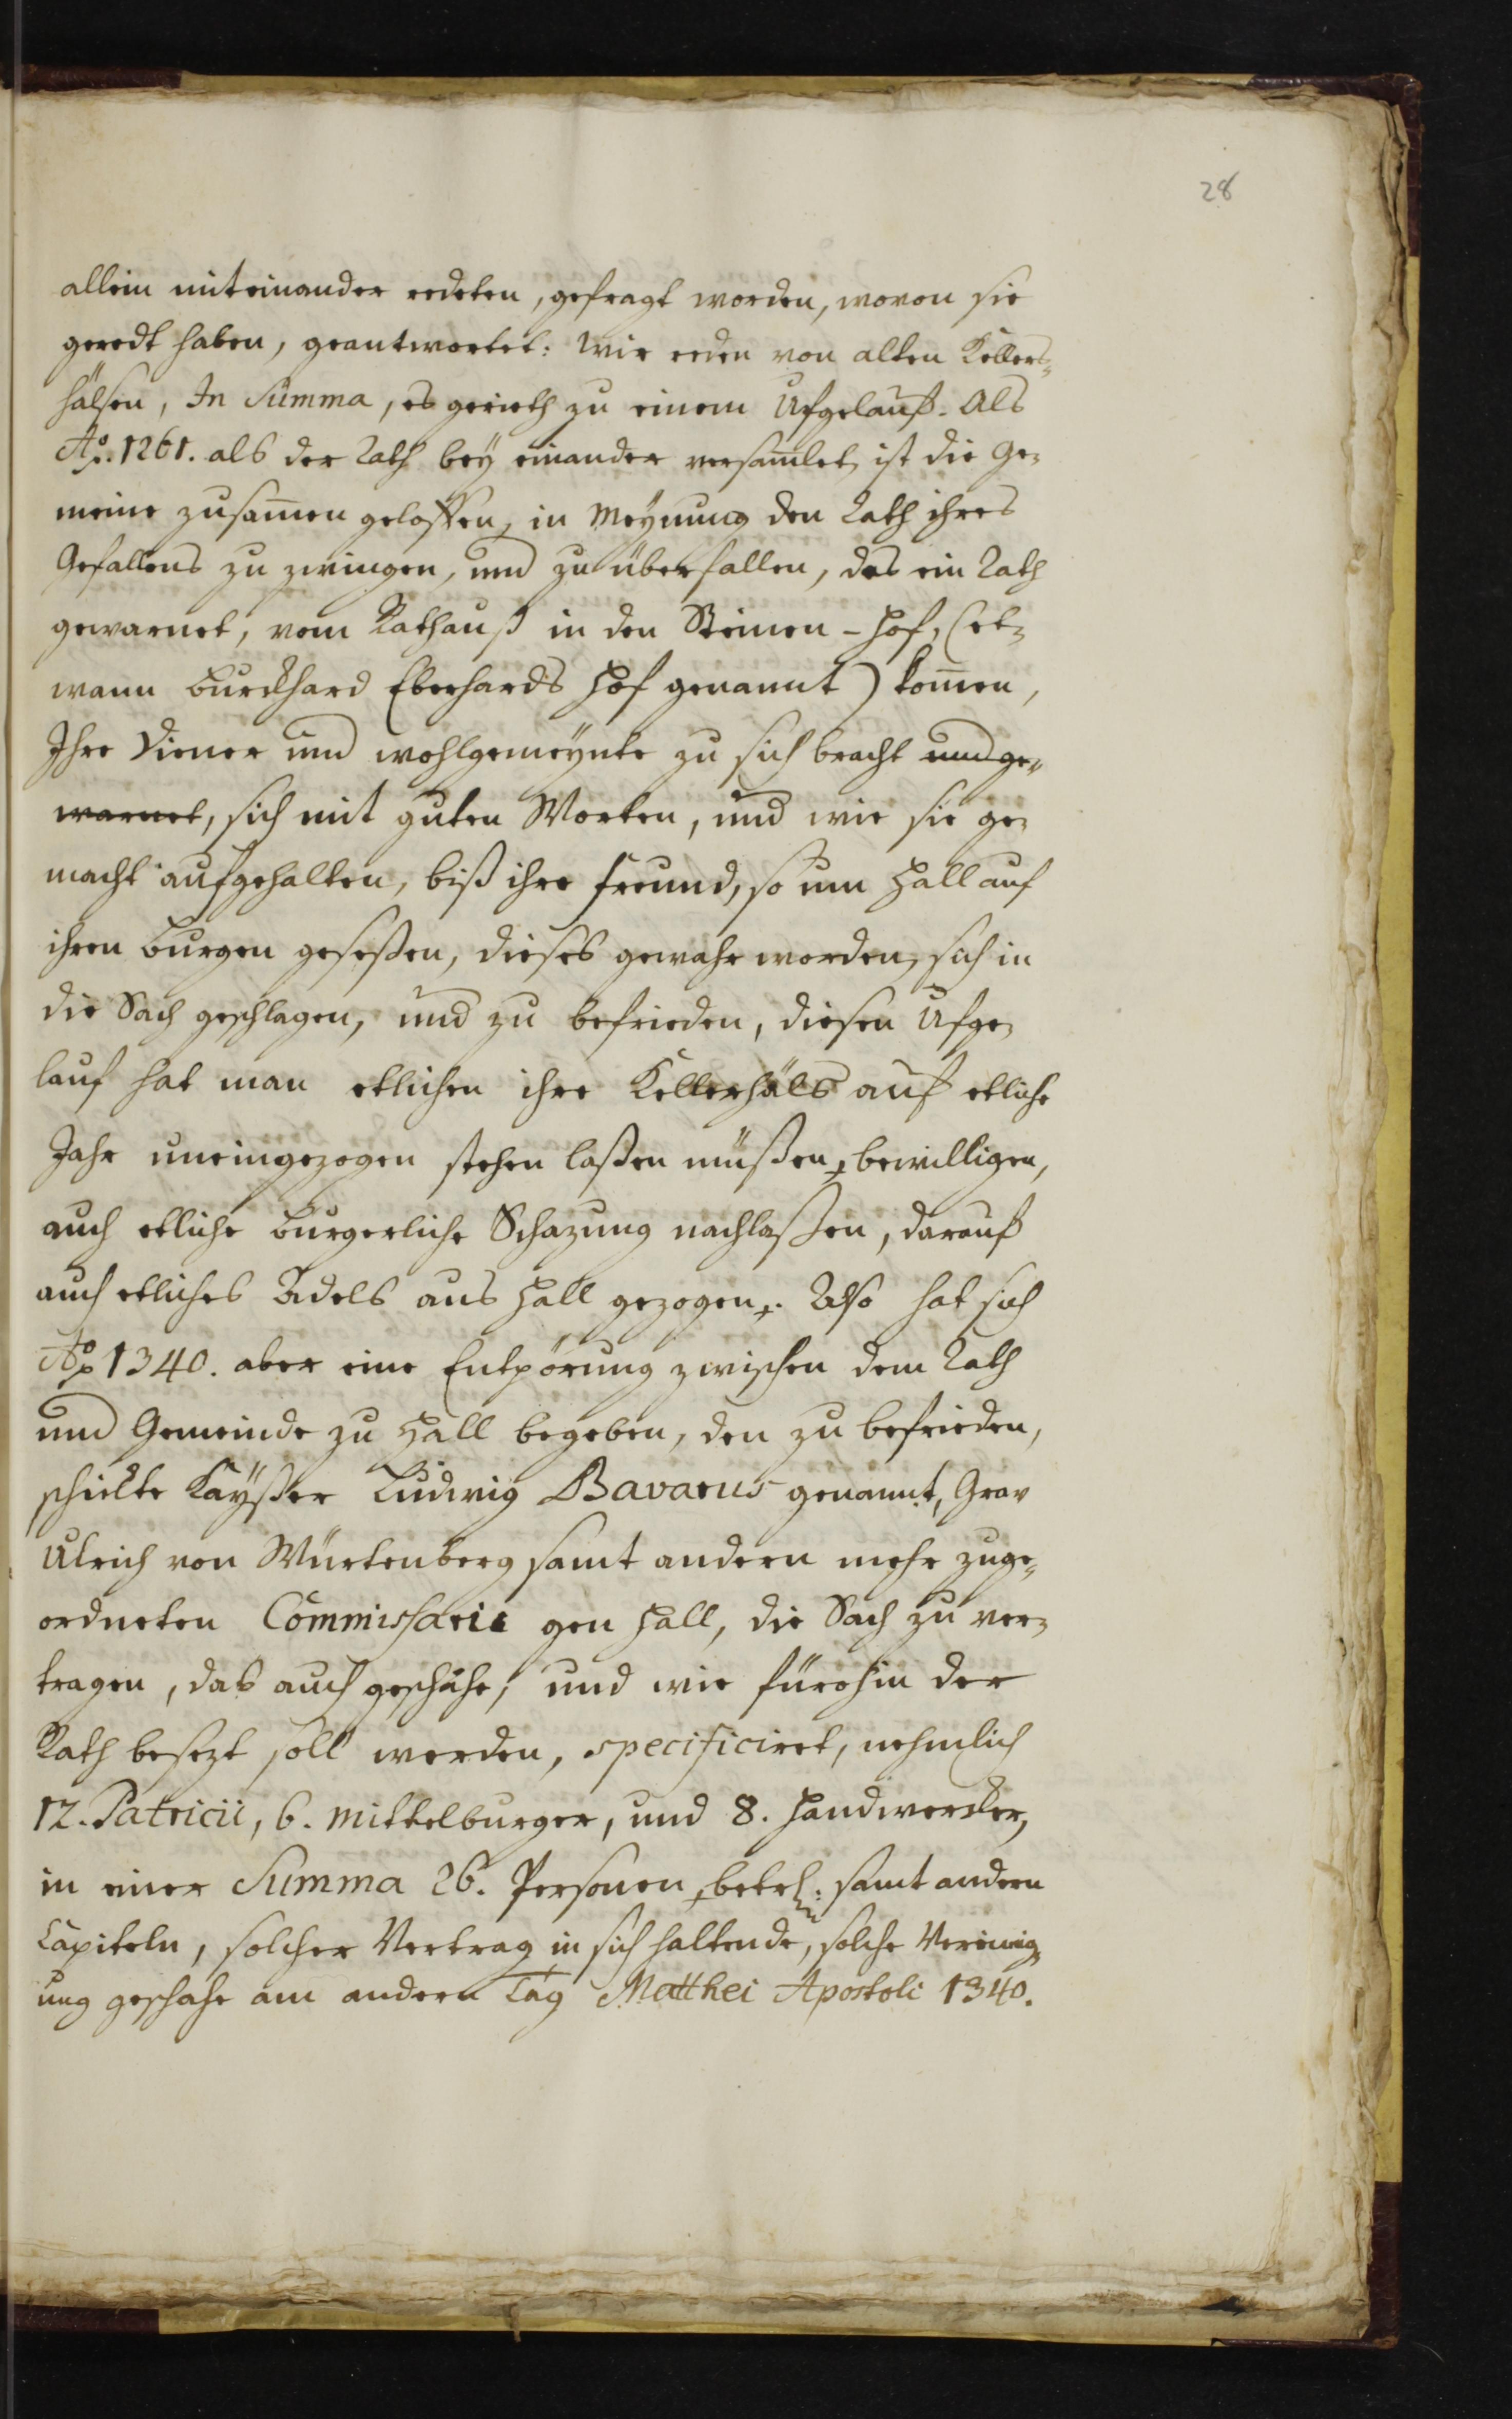 28
allein miteinander redeten, gefragt worden, wovon sie
geredt haben, geantwortet: Wir reden von alten Kellers-
hälsen, In Summa, es gerieth zu einem Ufgelauf. Als
Ao. 1261. als der Rath bey einander versam̅let, ist die Ge-
meine zusam̅en geloffen, in Meynung den Rath ihres
Gefallens zu zwingen, und zu überfallen, das ein Rath
gewarnet, vom Rathauß in den Steinen-Hof, (et-
wann Burckhard Eberhards Hof genannt) kom̅en,
Ihre Diener und wohlgemeynte zu sich bracht und ge-
warnet, sich mit guten Worten, und wie sie ge-
macht aufgehalten, biß ihre Freund, so um Hall auf
ihren Burgen geseßen, dieses gewahr worden, sich in
die Sach geschlagen, und zu befrieden, diesen Ufge-
lauf hat man etlichen ihre Kellerhäls auf etliche
Jahr uneingezogen stehen laßen müßen, bewilligen,
auch etliche Burgerliche Schazung nachlaßen, darauf
auch etliches Adels aus Hall gezogen. Also hat sich
Ao 1340. aber eine Entpörung zwischen dem Rath
und Gemeinde zu Hall begeben, den zu befrieden,
schickte Kayßer Ludwig Bavarus genannt, Grav
Ulrich von Würtenberg samt andern mehr zuge-
ordneten Commissarie gen Hall, die Sach zu ver-
tragen, das auch geschahe, und wie fürohin der
Rath besezt soll werden, specificiret, nehmlich
12. Patricii, 6. Mittelburger, und 8. Handwercker,
in einer Summa 26. Personen, samt andern
Capiteln, solcher Vertrag in sich haltende, solche Vereinig-
ung geschahe am andern Tag Matthei Apostoli 1340.